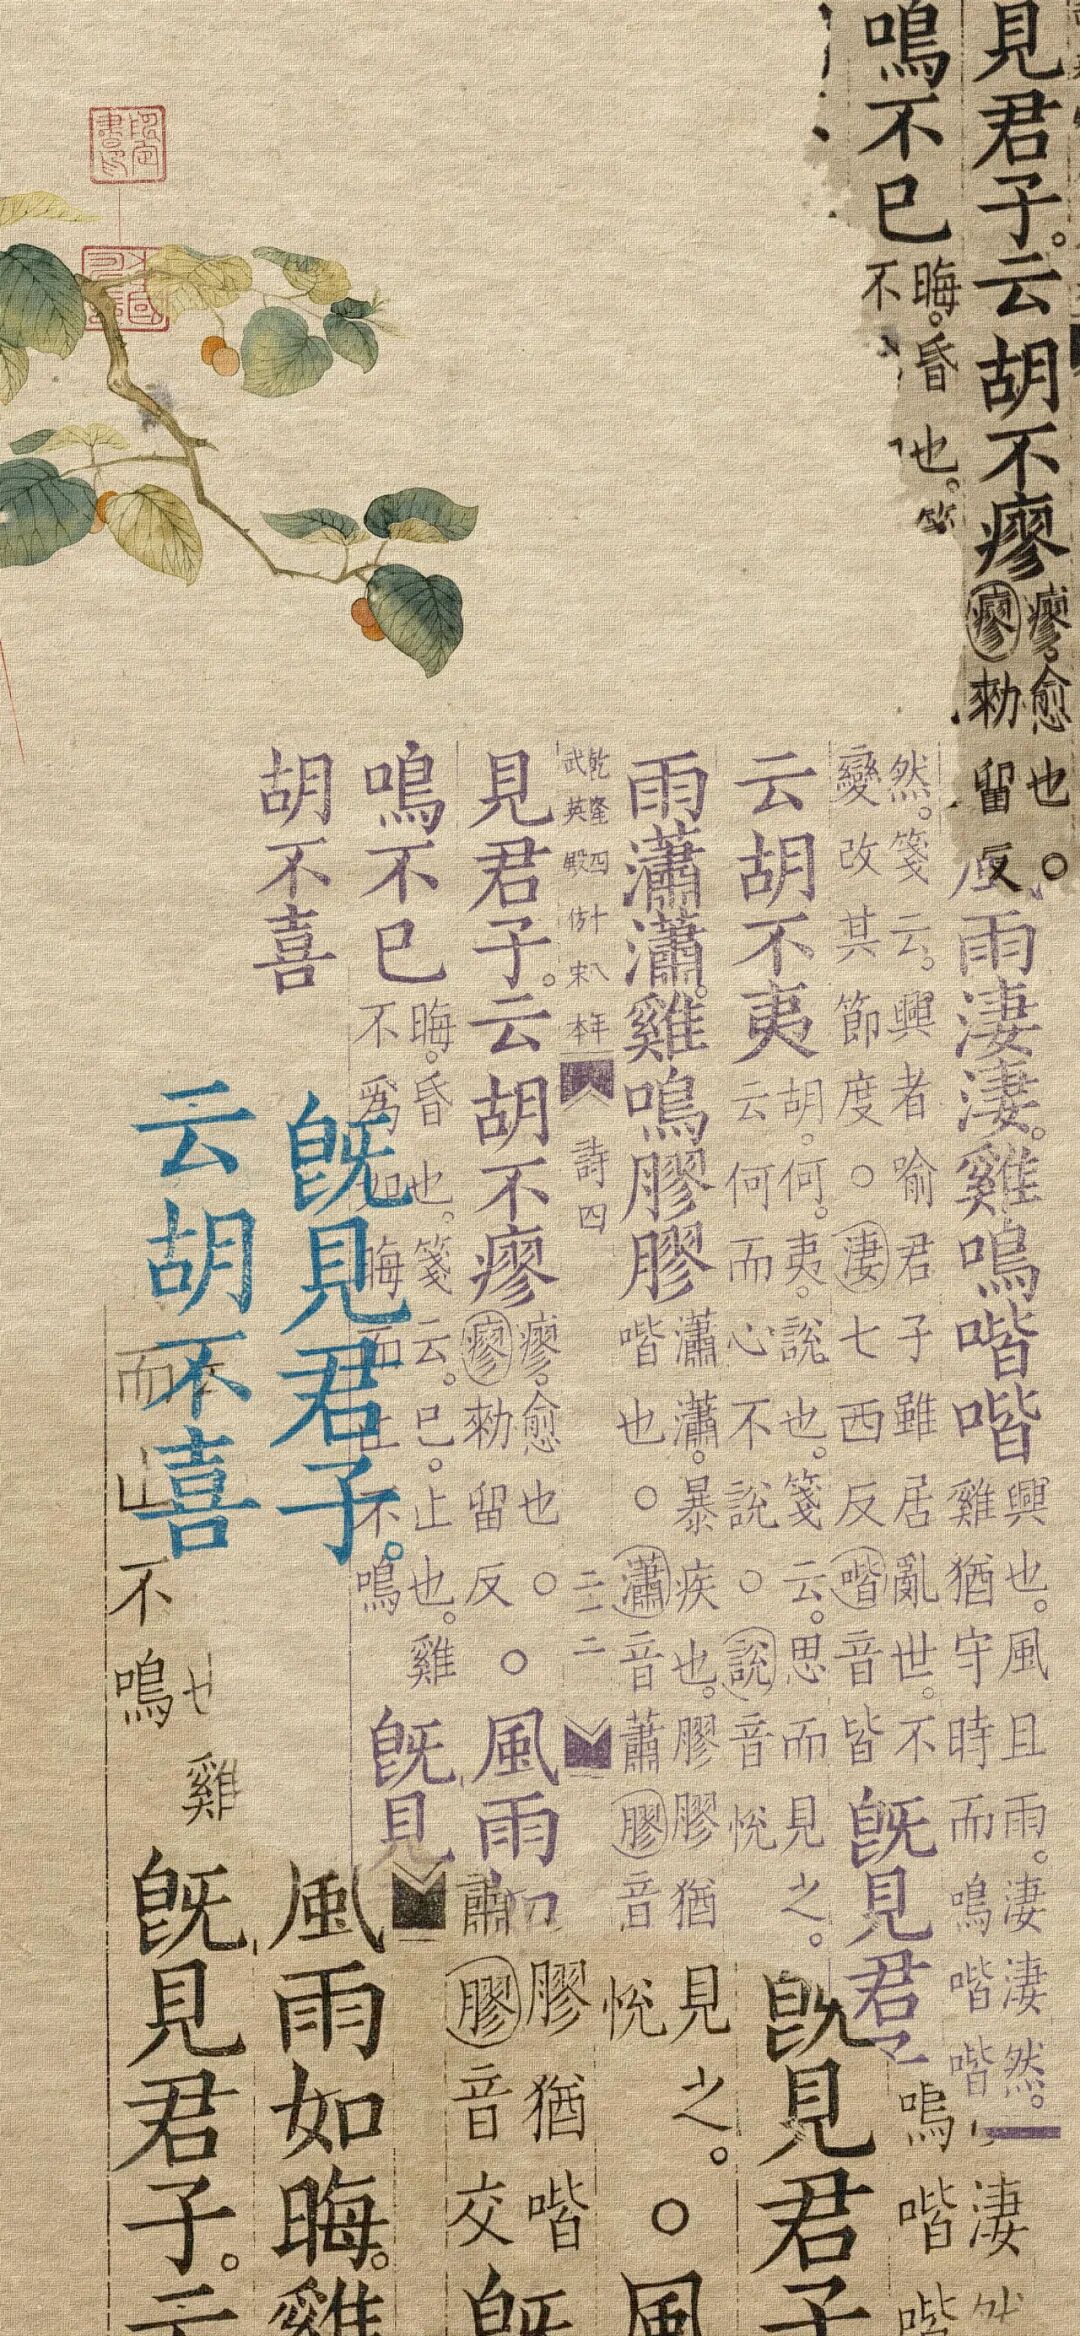 見君子。云胡不瘳
瘳。愈也
瘳勑留反。
鳴不已
晦。昏也。
不
風雨淒淒。雞鳴喈喈
興也。風且雨。淒淒然。
雞猶守時而鳴喈喈
然。箋云。興者喻君子雖居亂世。不
變改其節度。○淒七西反喈音皆
既見君
云胡不夷
胡。何。夷。說也。箋云。思而見之。
云何而心不說○說音悅
雨瀟瀟。雞鳴膠膠
瀟瀟。暴疾也。膠膠猶
喈也。○瀟音蕭膠音
乾隆四十八年
武英殿仿宋本
詩四
二
見君子。云胡不瘳
瘳。愈也○
瘳勑留反
○風雨
鳴不已
晦。昏也。箋云。已。止也。雞
不爲如晦而止不鳴
既見
胡不喜
既見君子。
云胡不喜
鳴
淒然
喈喈
既見君子
見之。
悅
○風
膠猶喈
膠音交
既
風雨如晦。雞
而止不鳴
雞
既見君子。云